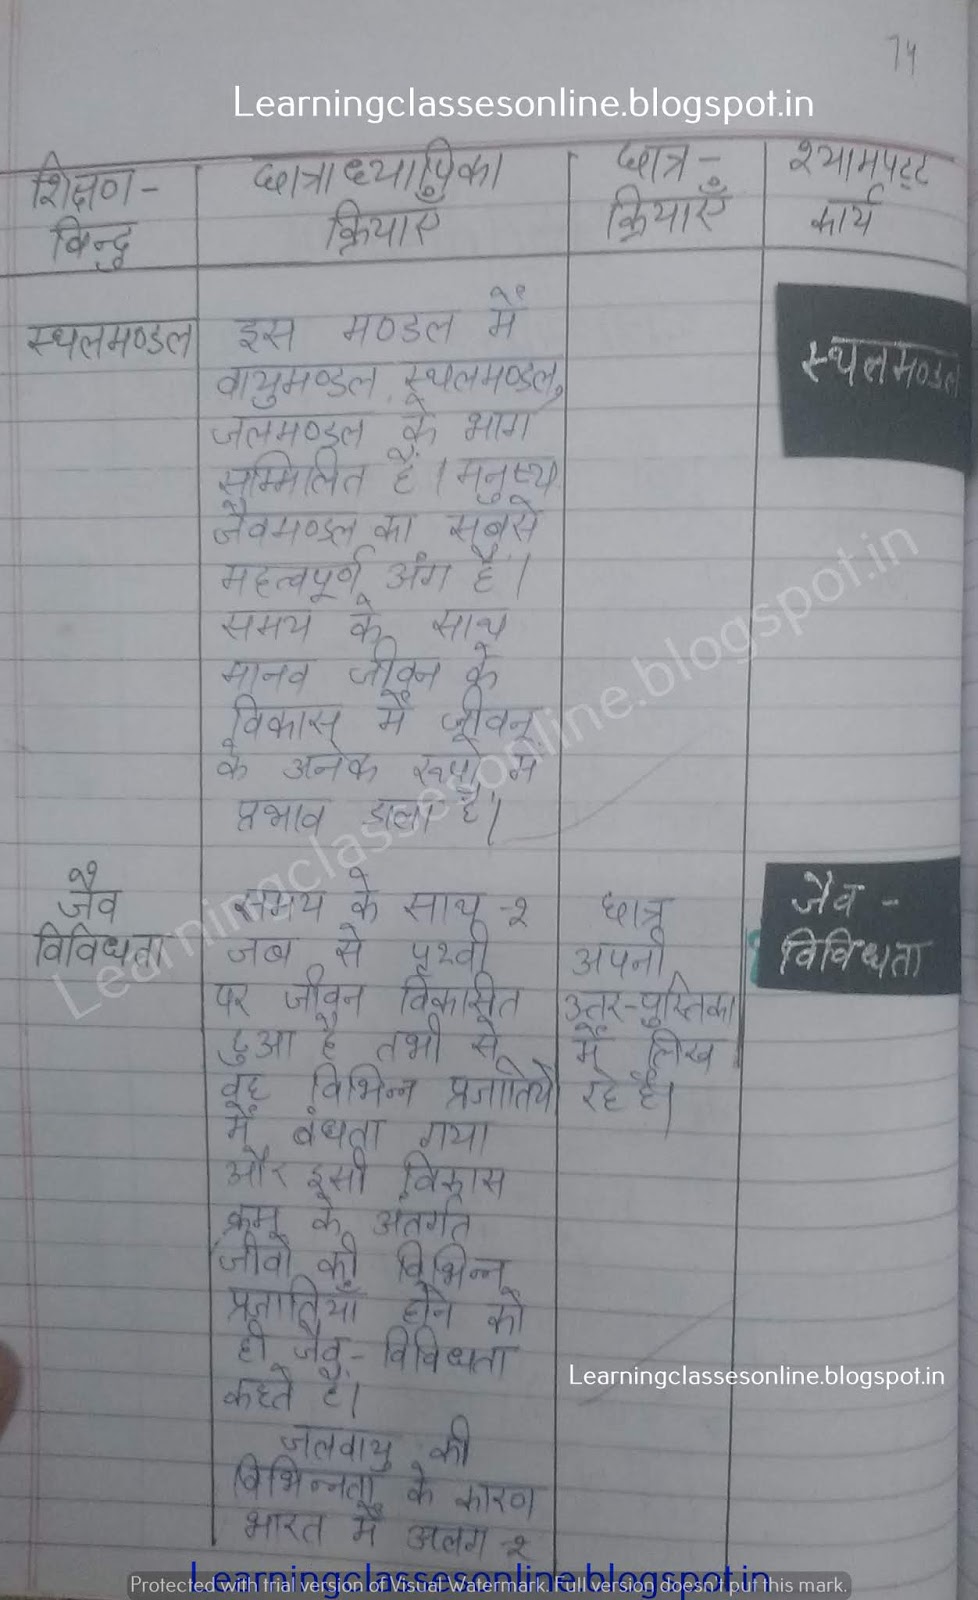 74
Learningclassesonline.blogspot.in
शिक्षण-
बिन्दु
छात्राध्यापिका
क्रियाएँ
छात्र-
क्रियाएँ
श्यामपट्ट
कार्य
स्थलमण्डल
इस मण्डल में
वायुमण्डल, स्थलमण्डल,
जलमण्डल के भाग
सम्मिलित हैं। मनुष्य
जैवमण्डल का सबसे
महत्वपूर्ण अंग है।
समय के साथ
मानव जीवन के
विकास में जीवन
के अनेक रूपों में
प्रभाव डाला है।
स्थलमण्डल
Learningclassesonline.blogspot.in
जैव
विविधता
समय के साथ-२
जब से पृथ्वी
पर जीवन विकसित
हुआ है तभी से
वह विभिन्न प्रजातियों
में बंधता गया
और इसी विकास
क्रम के अंतर्गत
जीवों की विभिन्न
प्रजातियाँ होने को
ही जैव-विविधता
कहते हैं।
जलवायु की
विभिन्नता के कारण
भारत में अलग-२
छात्र
अपनी
उत्तर-पुस्तिका
में लिख
रहे हैं।
जैव-
विविधता
Learningclassesonline.blogspot.in
Learningclassesonline.blogspot.in
Protected with trial version of Visual Watermark. Full version doesn't put this mark.